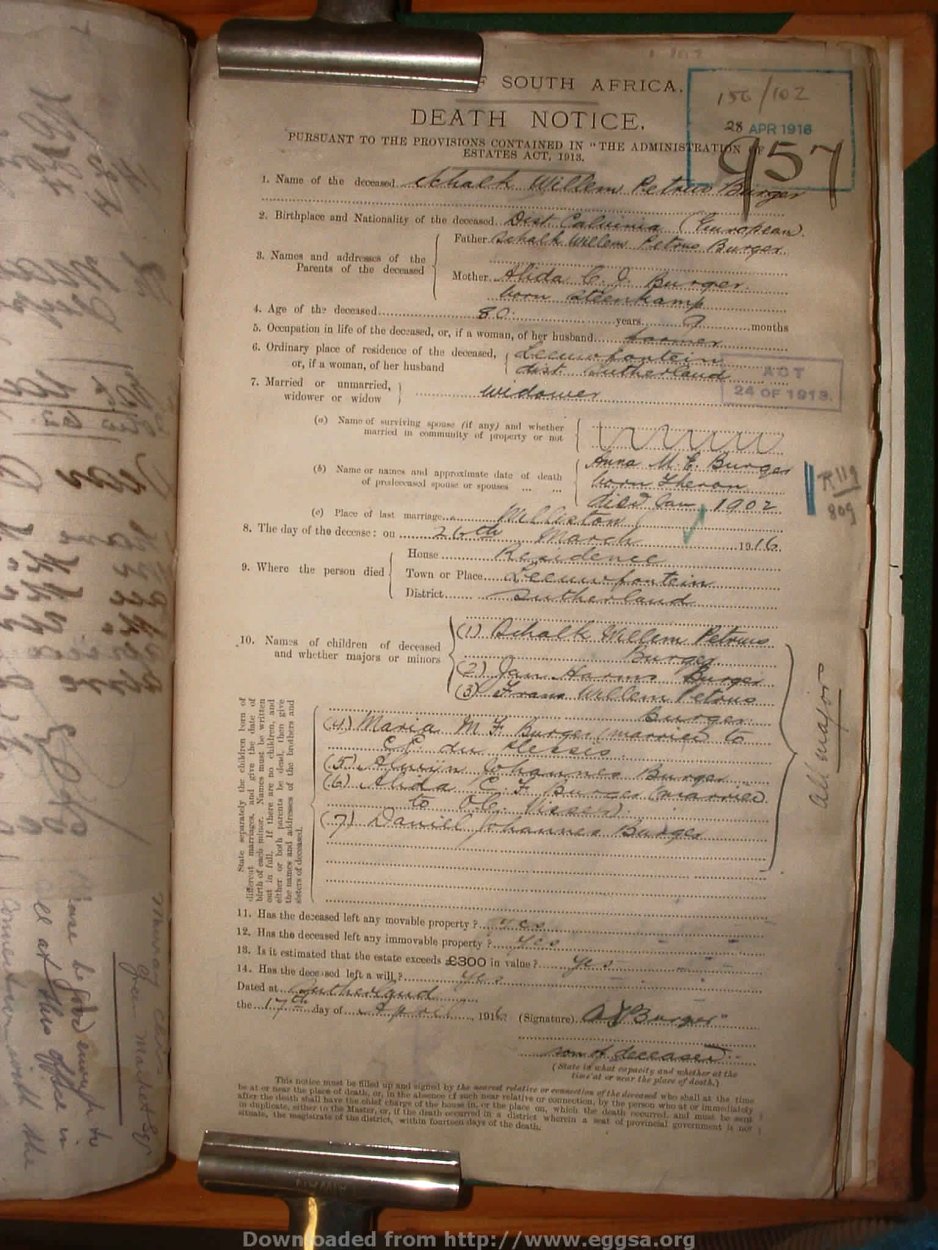 F SOUTH AFRICA.
156/102
28 APR 1916
957
DEATH NOTICE.
PURSUANT TO THE PROVISIONS CONTAINED IN "THE ADMINISTRATION OF
ESTATES ACT, 1913.
1. Name of the deceased Schalk Willem Petrus Burger
2. Birthplace and Nationality of the deceased. Dist Calvinia (European)
3. Names and addresses of the Parents of the deceased
Father Schalk Willem Petrus Burger
Mother Alida C. J. Burger
born Steenkamp
4. Age of the deceased 80 years 9 months
5. Occupation in life of the deceased, or, if a woman, of her husband farmer
6. Ordinary place of residence of the deceased, Leeuwfontein
or, if a woman, of her husband dist. Sutherland
ACT
24 OF 1913.
7. Married or unmarried,
widower or widow widower
(a) Name of surviving spouse (if any) and whether
married in community of property or not
(b) Name or names and approximate date of death
of predeceased spouse or spouses
Anna M. E. Burger
born Theron
died Jan 1902
(c) Place of last marriage Williston
8. The day of the decease: on 26th March 1916
9. Where the person died
House Residence
Town or Place Leeuwfontein
District Sutherland
10. Names of children of deceased
and whether majors or minors
(1) Schalk Willem Petrus
Burger
(2) Jan Harms Burger
(3) Frans Willem Petrus
Burger
(4) Maria M F Burger (married to
du Plessis
(5) Johannes Burger
(6) Alida C F Burger (married
to Visser)
(7) Daniel Johannes Burger
All majors
State separately the children born of
different marriages, and give the date of
birth of each minor. Names must be written
out in full. If there are no children, and
either or both parents be dead, then give
the names and addresses of the brothers and
sisters of deceased.
11. Has the deceased left any movable property? yes
12. Has the deceased left any immovable property? Yes
13. Is it estimated that the estate exceeds £300 in value? Yes
14. Has the deceased left a will? yes
Dated at Sutherland
the 17th day of April 1916 (Signature) A J Burger
son of deceased
(State in what capacity and whether at the
time at or near the place of death.)
This notice must be filled up and signed by the nearest relative or connection of the deceased who shall at the time
be at or near the place of death, or, in the absence of such near relative or connection, by the person who at or immediately
after the death shall have the chief charge of the house in, or the place on, which the death occurred, and must be sent
in duplicate, either to the Master, or, if the death occurred in a district wherein a seat of provincial government is not
situate, the magistrate of the district, within fourteen days of the death.
Please be good enough to
call at this office in
connection with the
Downloaded from http://www.eggsa.org